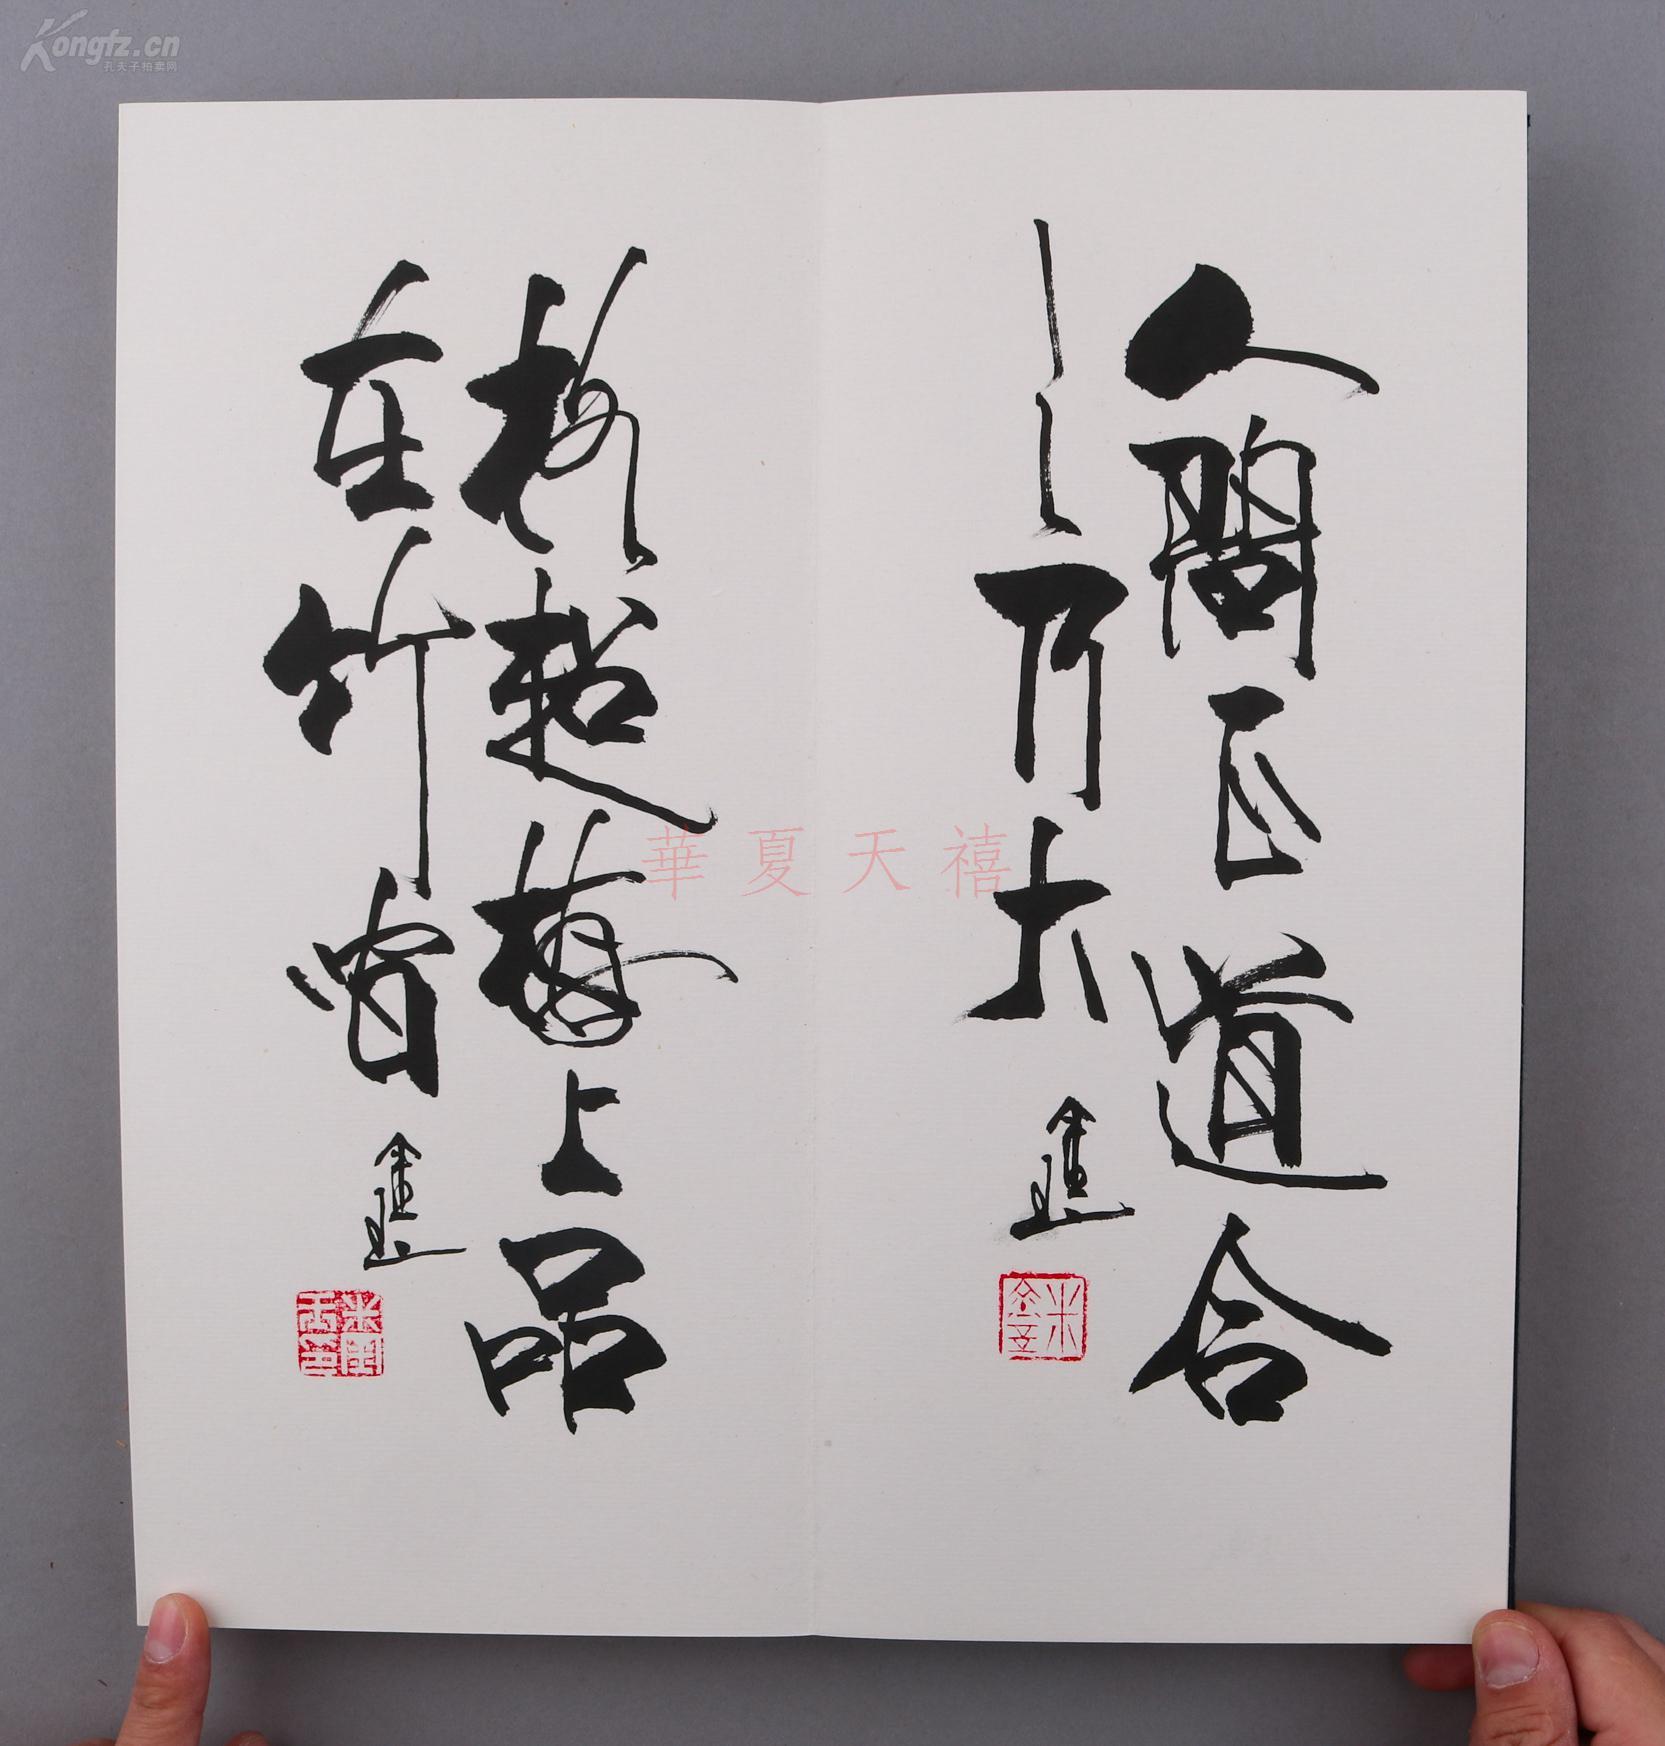 Kongfz.cn
孔夫子拍卖网
人間正道合
乃大
格超梅上品
在竹間
華夏天禧